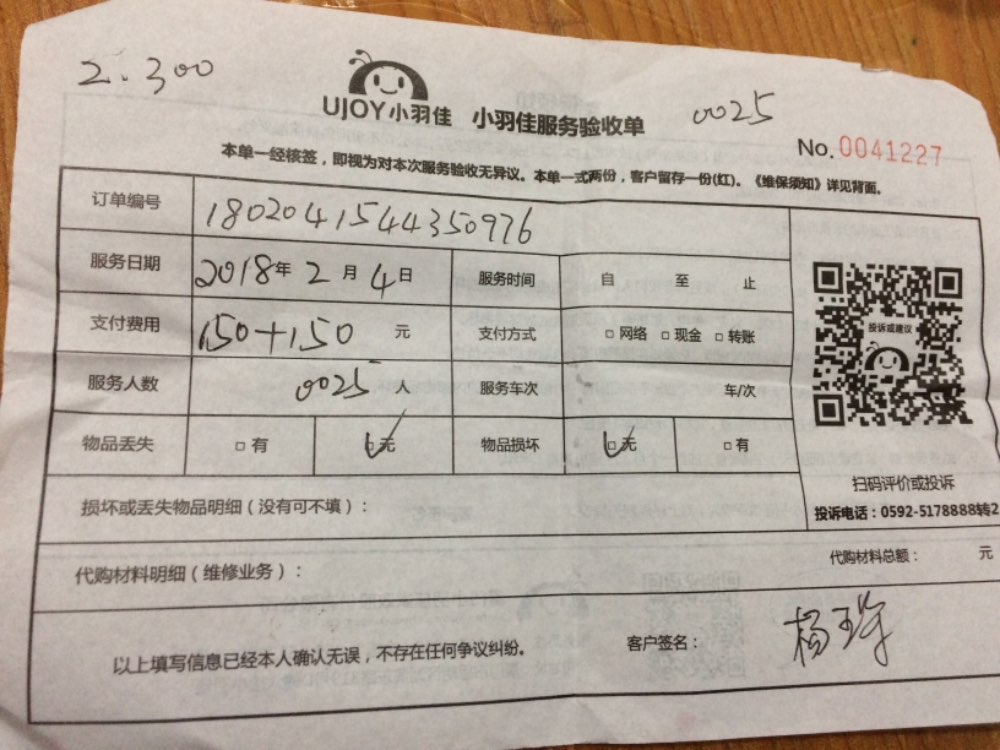 2.300
UJOY小羽佳 小羽佳服务验收单
0025
No.0041227
本单一经核签，即视为对本次服务验收无异议。本单一式两份，客户留存一份(红)。《维保须知》详见背面。
订单编号 1802041544350976
服务日期 2018年2月4日 服务时间 自 至 止
支付费用 150+150 元 支付方式 □网络 □现金 □转账
投诉或建议
服务人数 0025 人 服务车次 车/次
物品丢失 □有 ☑无 物品损坏 ☑无 □有
扫码评价或投诉
投诉电话：0592-5178888转2
损坏或丢失物品明细（没有可不填）：
代购材料明细（维修业务）： 代购材料总额： 元
以上填写信息已经本人确认无误，不存在任何争议纠纷。 客户签名：